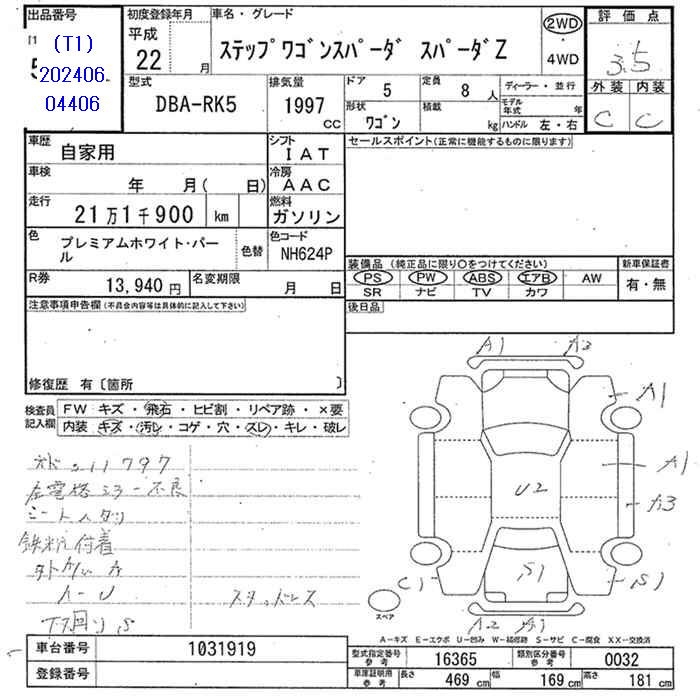 出品番号
(T1)
202406
04406
初度登録年月
平成
22 月
車名・グレード
ステップワゴンスパーダ スパーダZ
2WD
4WD
評価点
3.5
外装 内装
C C
型式
DBA-RK5
排気量
1997
CC
ドア
5
定員
8 人
形状
ワゴン
積載
kg
ディーラー・並行
モデル年式 年
ハンドル 左・右
車歴
自家用
シフト
IAT
セールスポイント(正常に機能するものに限ります)
車検
年 月( 日)
冷房
AAC
走行
21万1千900 km
燃料
ガソリン
色
プレミアムホワイト・パール
色替
色コード
NH624P
装備品 (純正品に限り○をつけてください)
新車保証書
PS PW ABS エアB AW
SR ナビ TV カワ
有・無
R券
13,940円
名変期限
月 日
後日品
注意事項申告欄(不具合内容等は具体的に記入して下さい)
修復歴 有〔箇所 〕
検査員
記入欄
FW:キズ・飛石・ヒビ割・リペア跡・×要
内装:キズ・汚レ・コゲ・穴・スレ・キレ・破レ
211797
左電格ミラー不良
シート
鉄粉付着
スタッドレス
下回りS
A1
A1
A1
U2
S1
C1
S1
A2
スペア
A-キズ E-エクボ U-凹み W-補修跡 S-サビ C-腐食 XX-交換済
車台番号
1031919
登録番号
型式指定番号
参考
16365
類別区分番号
参考
0032
車庫証明用
参考
長さ
469 cm
幅
169 cm
高さ
181 cm